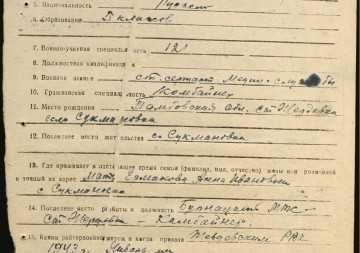 5. Национальность Русский
6. Образование 5 классов
7. Военно-учетная специальность 121
8. Должностная квалификация
9. Военное звание ст. сержант Медиц. службы
10. Гражданская специальность Комбайнер
11. Место рождения Тамбовская обл. ст. Жердевка
село Сукмановка
12. Последнее место жительства с. Сукмановка
13. Где проживает в настоящее время семья (фамилия, имя, отчество) жены или родителей
и точный их адрес Мать Ермакова Анна Ивановна
с Сукмановка
14. Последнее место работы и должность МТС
ст. Комбайнер
15. Каким райвоенкоматом и когда призван РВК
1943 г. Январь